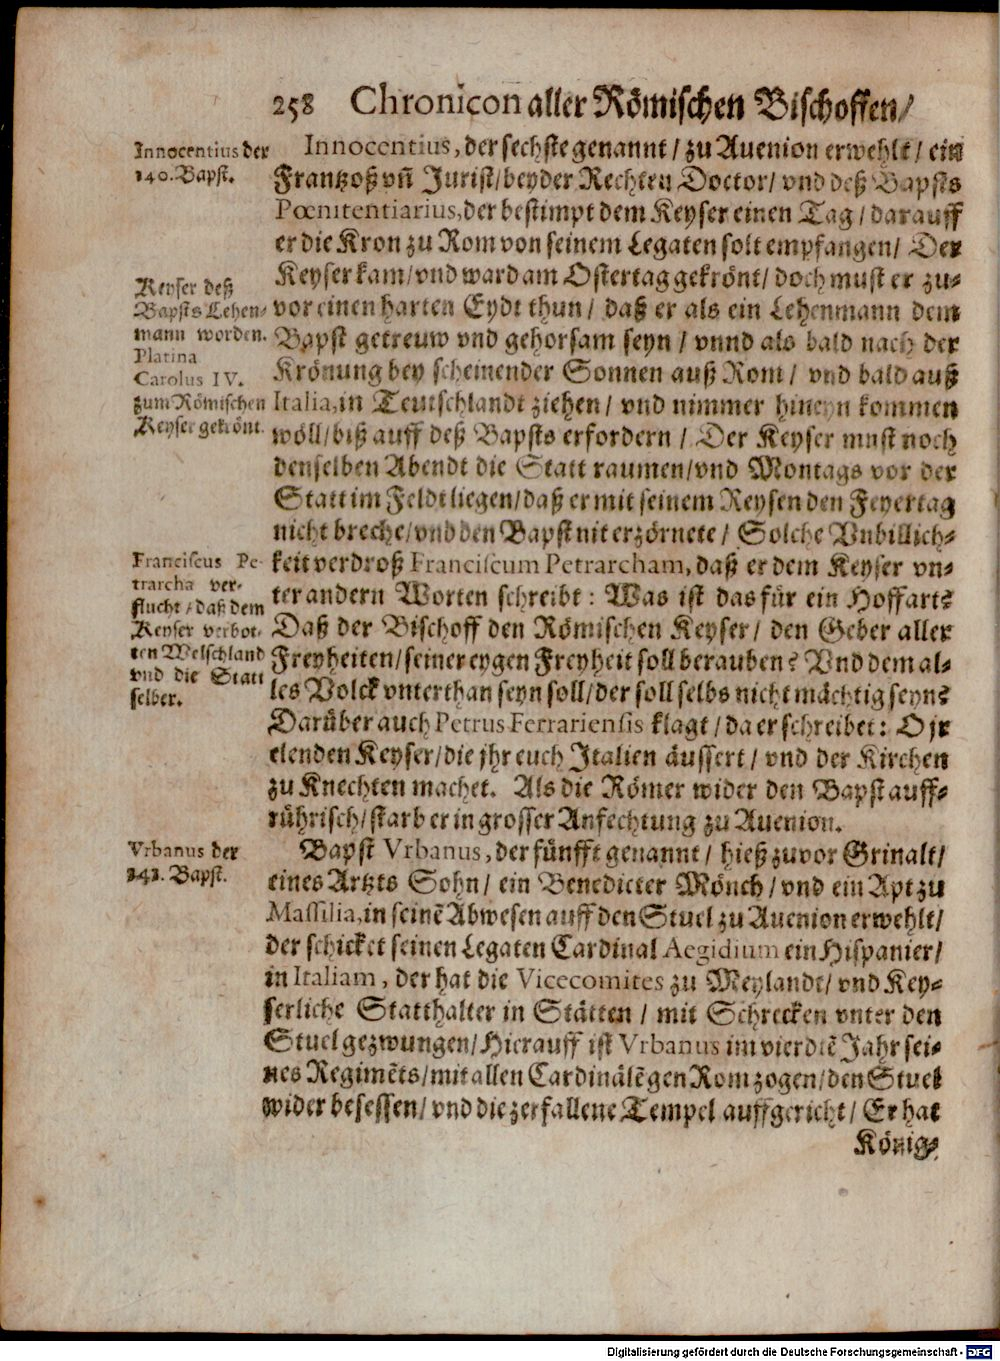 258 Chronicon aller Römischen Bischoffen/
Innocentius der
140. Bapst.
Innocentius, der sechste genannt / zu Auenion erwehlt / ein
Frantzoß vñ Jurist/ beyder Rechten Doctor/ vnd deß Bapsts
Pœnitentiarius, der bestimpt dem Keyser einen Tag / darauff
er die Kron zu Rom von seinem Legaten solt empfangen/ Der
Keyser kam/ vnd ward am Ostertag gekrönt/ doch must er zu-
Keyser deß
Bapsts Lehen-
mann worden.
Platina
Carolus IV.
zum Römischen
Keyser gekrönt.
vor einen harten Eydt thun / daß er als ein Lehenmann dem
Bapst getreuw vnd gehorsam seyn / vnnd als bald nach der
Krönung bey scheinender Sonnen auß Rom / vnd bald auß
Italia, in Teutschlandt ziehen / vnd nimmer hineyn kommen
wöll/ biß auff deß Bapsts erfordern / Der Keyser must noch
denselben Abendt die Statt raumen/ vnd Montags vor der
Statt im Feldt liegen/ daß er mit seinem Reysen den Feyertag
nicht breche/ vnd den Bapst nit erzörnete / Solche Vnbillich-
Franciscus Pe-
trarcha ver-
flucht / daß dem
Keyser verbot-
ten Welschland
vnd die Statt
selber.
keit verdroß Franciscum Petrarcham, daß er dem Keyser vn-
ter andern Worten schreibt : Was ist das für ein Hoffart?
Daß der Bischoff den Römischen Keyser / den Geber aller
Freyheiten/ seiner eygen Freyheit soll berauben? Vnd dem al-
les Volck vnterthan seyn soll/ der soll selbs nicht mächtig seyn?
Darüber auch Petrus Ferrariensis klagt / da er schreibet : O jr
elenden Keyser/ die jhr euch Italien äussert / vnd der Kirchen
zu Knechten machet. Als die Römer wider den Bapst auff-
rührisch/ starb er in grosser Anfechtung zu Auenion.
Vrbanus der
141. Bapst.
Bapst Vrbanus, der fünfft genannt / hieß zuvor Grinalt/
eines Artzts Sohn / ein Benedicter Mönch / vnd ein Apt zu
Massilia, in seinē Abwesen auff den Stuel zu Auenion erwehlt/
der schicket seinen Legaten Cardinal Aegidium ein Hispanier/
in Italiam, der hat die Vicecomites zu Meylandt/ vnd Key-
serliche Statthalter in Stätten / mit Schrecken vnter den
Stuel gezwungen/ Hierauff ist Vrbanus im vierdtē Jahr sei-
nes Regimēts/ mit allen Cardinälē gen Rom zogen/ den Stuel
wider besessen/ vnd die zerfallene Tempel auffgericht / Er hat
König-
Digitalisierung gefördert durch die Deutsche Forschungsgemeinschaft - DFG